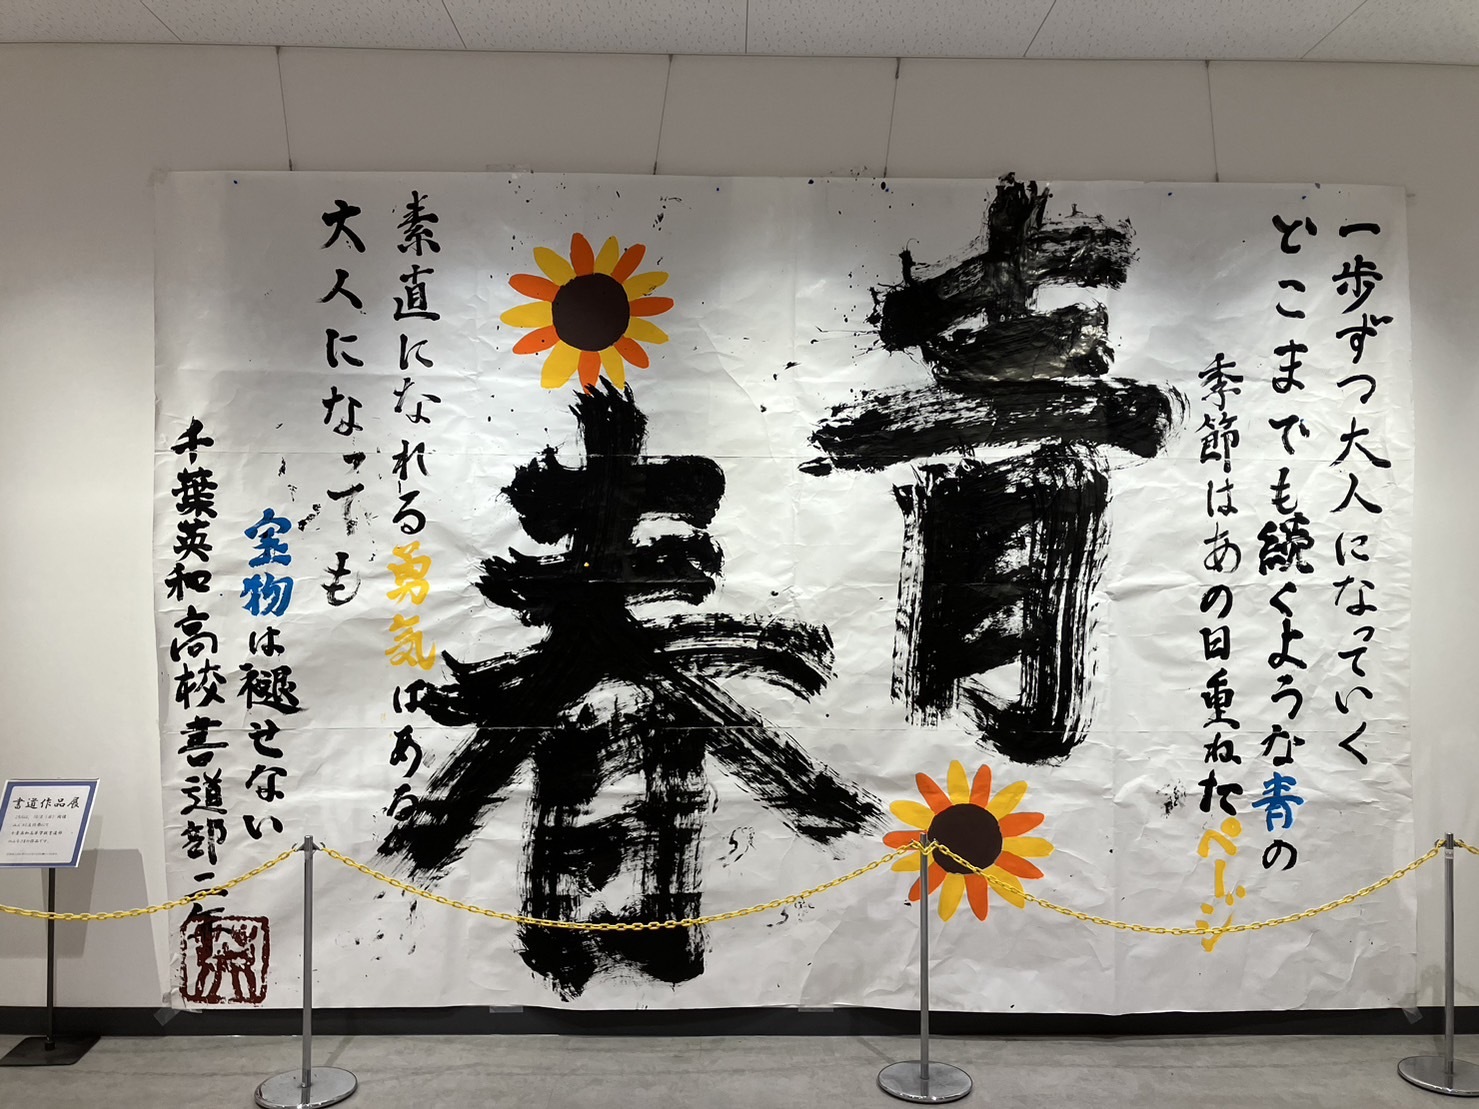 一歩ずつ大人になっていく
どこまでも続くような青の
季節はあの日重ねたページ
青春
素直になれる勇気はある
大人になっても
宝物は褪せない
千葉英和高校書道部二年
書道作品展